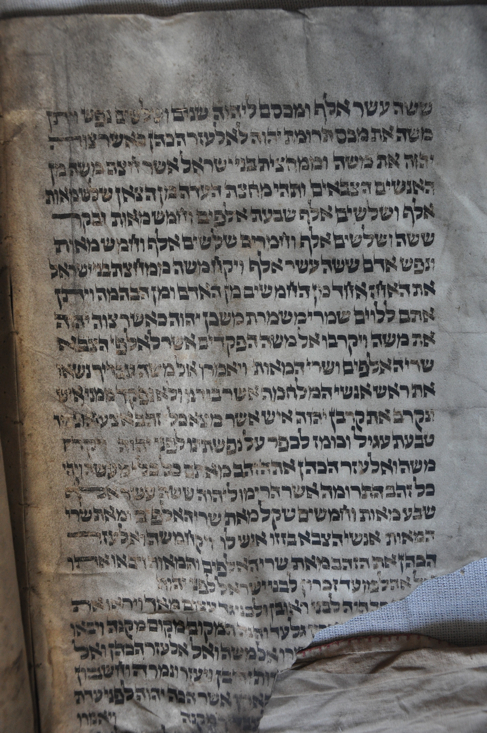 ששה עשר אלף ומכסם ליהוה שנים ושלשים נפש ויתן
משה את מכס תרומת יהוה לאלעזר הכהן כאשר צוה
יהוה את משה וממחצית בני ישראל אשר חצה משה מן
האנשים הצבאים ותהי מחצת העדה מן הצאן שלש מאות
אלף ושלשים אלף שבעת אלפים וחמש מאות ובקר
ששה ושלשים אלף וחמרים שלשים אלף וחמש מאות
ונפש אדם ששה עשר אלף ויקח משה ממחצת בני ישראל
את האחז אחד מן החמשים מן האדם ומן הבהמה ויתן
אתם ללוים שמרי משמרת משכן יהוה כאשר צוה יהוה
את משה ויקרבו אל משה הפקדים אשר לאלפי הצבא
שרי האלפים ושרי המאות ויאמרו אל משה עבדיך נשאו
את ראש אנשי המלחמה אשר בידנו ולא נפקד ממנו איש
ונקרב את קרבן יהוה איש אשר מצא כלי זהב אצעדה
טבעת עגיל וכומז לכפר על נפשתינו לפני יהוה ויקח
משה ואלעזר הכהן את הזהב מאתם כל כלי מעשה ויהי
כל זהב התרומה אשר הרימו ליהוה ששה עשר אלף
שבע מאות וחמשים שקל מאת שרי האלפים ומאת שרי
המאות אנשי הצבא בזזו איש לו ויקח משה ואלעזר
הכהן את הזהב מאת שרי האלפים והמאות ויבאו אתו
אל אהל מועד זכרון לבני ישראל לפני יהוה
לבני ראובן ולבני גד עצום מאד ויראו את
גלעד והנה המקום מקום מקנה ויבאו
ויאמרו אל משה ואל אלעזר הכהן ואל
ויעזר ונמרה וחשבון
אשר הכה יהוה לפני עדת
מקנה ויאמרו